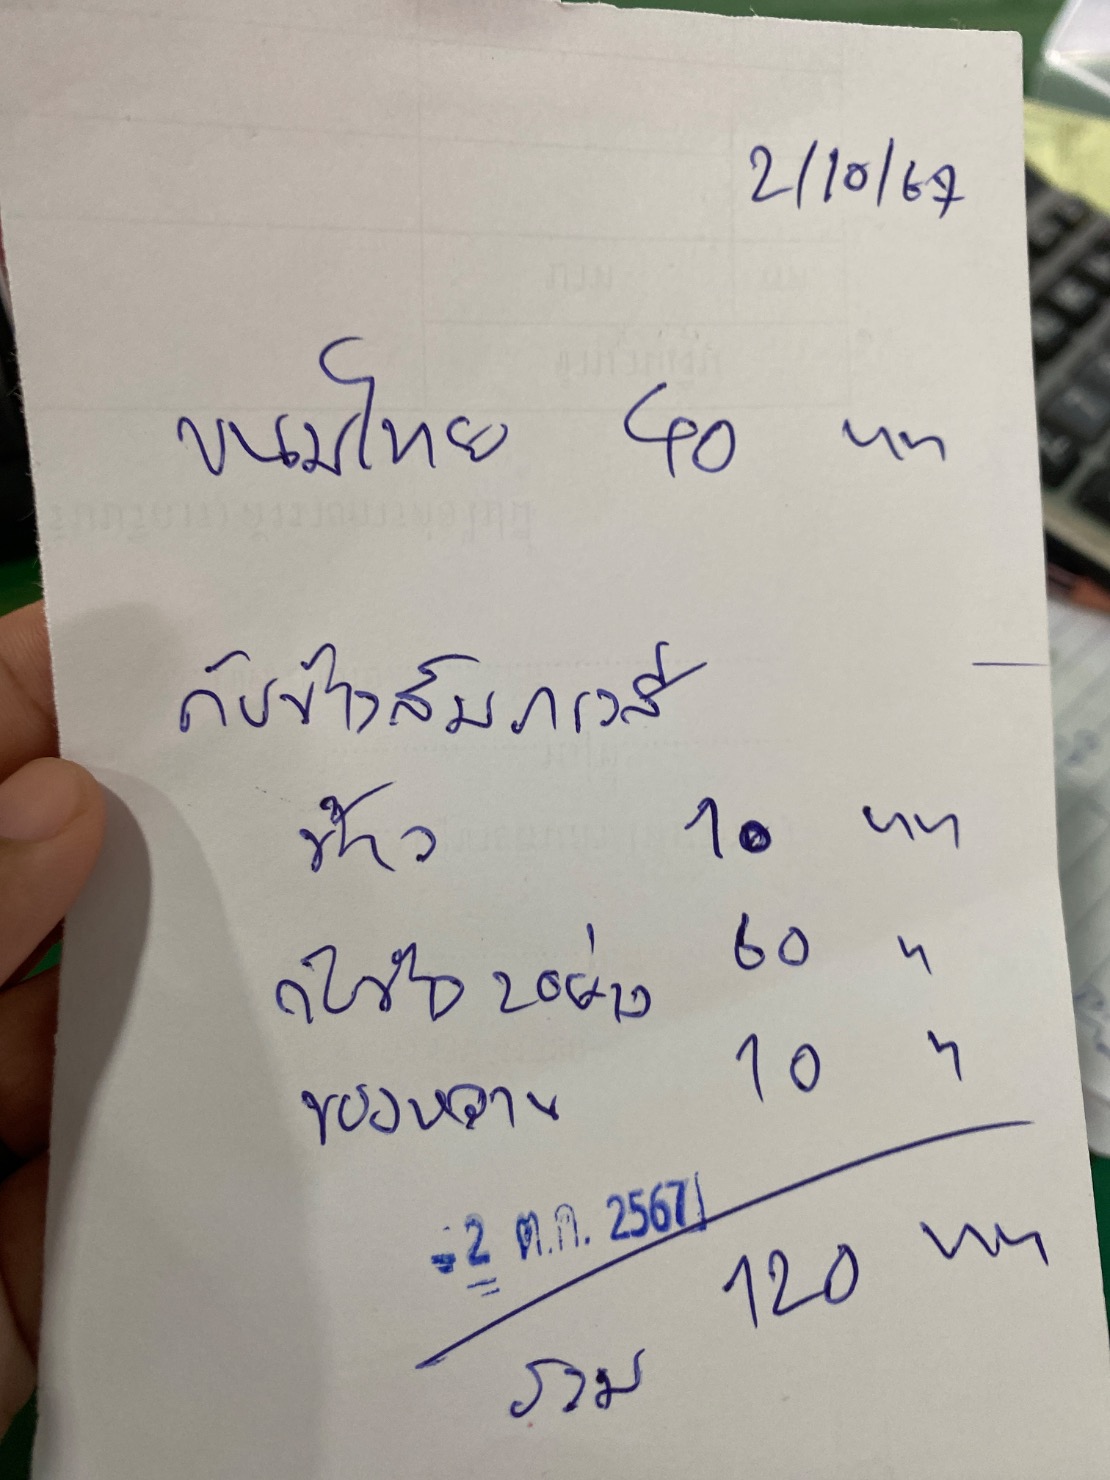 2/10/67
ขนมไทย 40 บาท
กับข้าวส้มภรวสี
ข้าว 10 บาท
กับข้าว 2 อย่าง 60 "
ของหวาน 10 "
-2 ต.ค. 2567
120 บาท
รวม